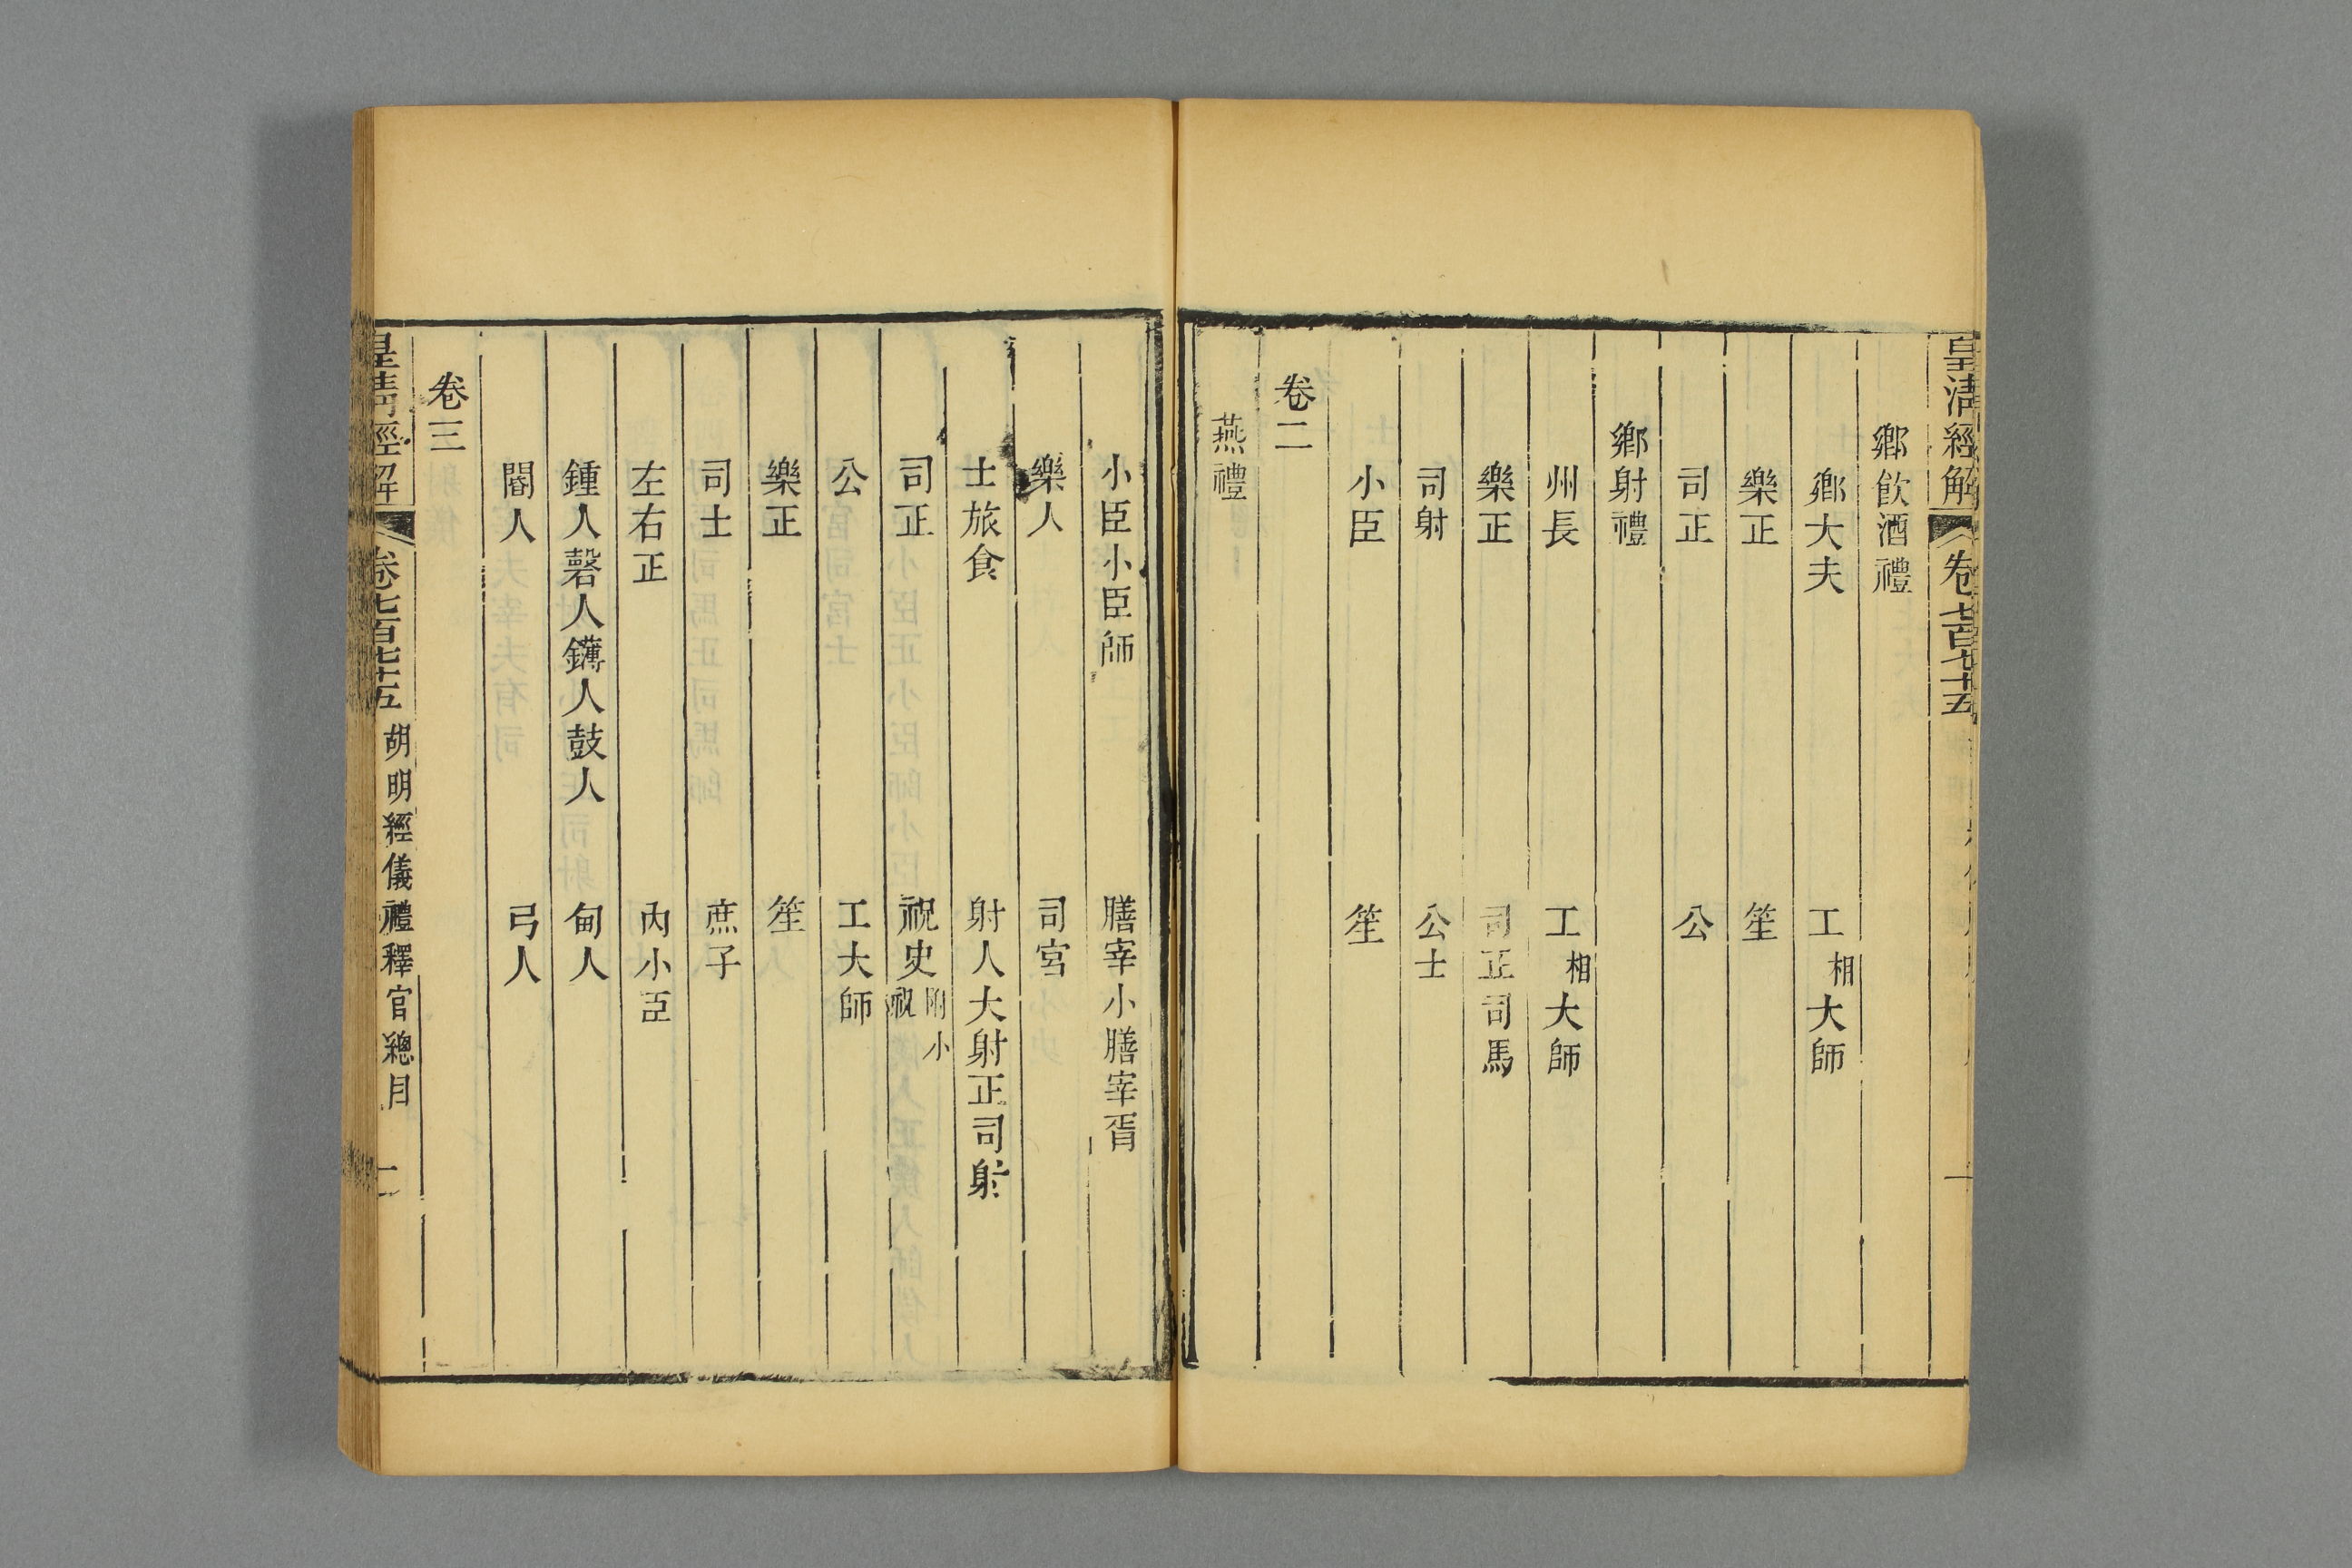 皇清經解 卷七百七十五
鄉飲酒禮
鄉大夫 工相大師
樂正 笙
司正 公
鄉射禮
州長 工相大師
樂正 司正司馬
司射 公士
小臣 笙
卷二
燕禮
小臣小臣師 膳宰小膳宰胥
樂人 司宮
士旅食 射人大射正司射
司正 祝史附小祝
公 工大師
樂正 笙
司士 庶子
左右正 內小臣
鍾人磬人鑮人鼓人 甸人
閽人 弓人
卷三
皇清經解 卷七百七十五 胡明經儀禮釋官總目 二